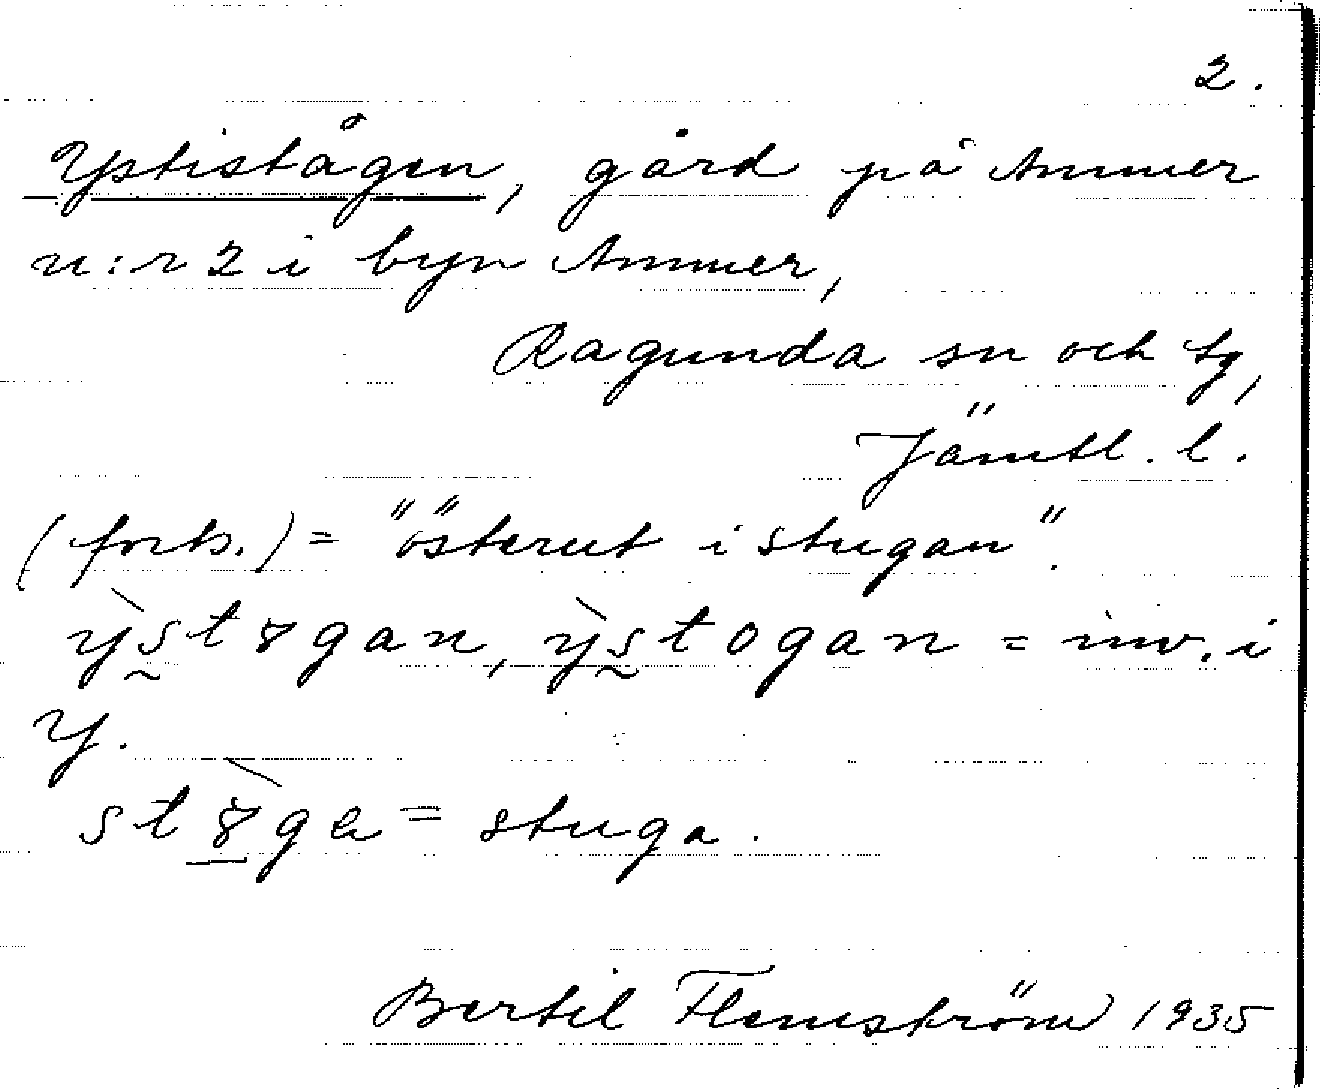 2.
Ystistågen, gård på Ammer
n:r 2 i byn Ammer,
Ragunda sn och tg,
Jämtl. l.
(forts.) = "österut i stugan".
= inv. i
Y.
= stuga.
Bertil Flemström 1935